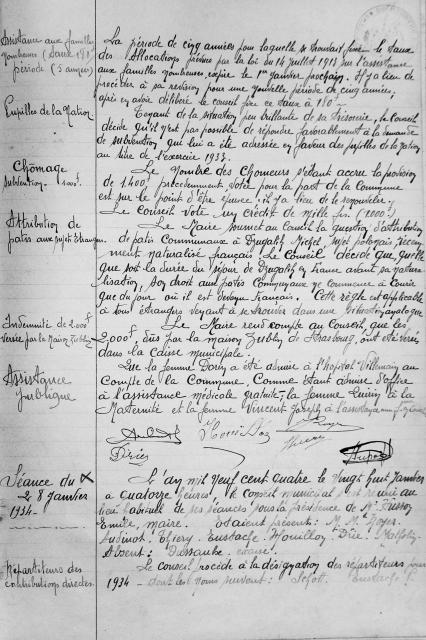 Assistance aux familles
nombreuses (taux
période (5 années)
La période de cinq années pour laquelle se trouvait fixé le taux
des Allocations prévues par la loi du 14 juillet 1913 sur l'assistance
aux familles nombreuses, expire le 1er janvier prochain. Il y a lieu de
procéder à sa revision pour une nouvelle période de cinq années;
après en avoir délibéré le conseil fixe ce taux à
Pupilles de la Nation.
Voyant de la situation peu brillante de sa trésorerie, le Conseil
décide qu'il n'est pas possible de répondre favorablement à la demande
de subvention qui lui a été adressée en faveur des pupilles de la Nation
au titre de l'exercice 1933.
Chômage
subvention
Le Nombre des Chômeurs s'étant accru la provision
de 1400 précédemment votée pour la part de la Commune
est sur le point d'être épuisée, il y a lieu de la renouveler.
Le Conseil vote un crédit de mille frs (1000).
Attribution de
patis aux sujets Etrangers.
Le Maire soumet au Conseil la question d'attribution
de patis Communaux à Michel, sujet polonais, récem
ment naturalisé français. Le Conseil décide que, quelle
que soit la durée du séjour de en France avant sa natura
lisation, son droit aux patis Communaux ne commence à courir
que du jour où il est devenu Français. Cette règle est applicable
à tous étrangers venant à se trouver dans une situation analogue
Indemnité de 2.000f
versée par la Maison Zubly
Le Maire rend compte au Conseil, que les
2.000f, dus par la maison Zubly de Strasbourg ont été versés
dans la caisse municipale.
Assistance
publique
Que la femme a été admise à l'hôpital Villemin au
compte de la Commune, Comme étant admise d'office
à l'assistance médicale gratuite, la femme à la
Maternité et la femme Vincent Joseph à
Séance du
28 Janvier
1934.
L'an mil neuf cent quatre le vingt huit Janvier
à quatorze heures, le conseil municipal s'est réuni au
lieu habituel de ses séances sous la présidence de Mr
Emile, maire. étaient présents: M.M. Royer.
Thiéry. Eustache. Houillon.
Absent:
Répartiteurs des
contributions directes.
Le Conseil procède à la désignation des répartiteurs pour
1934 - dont les noms suivent: Eustache